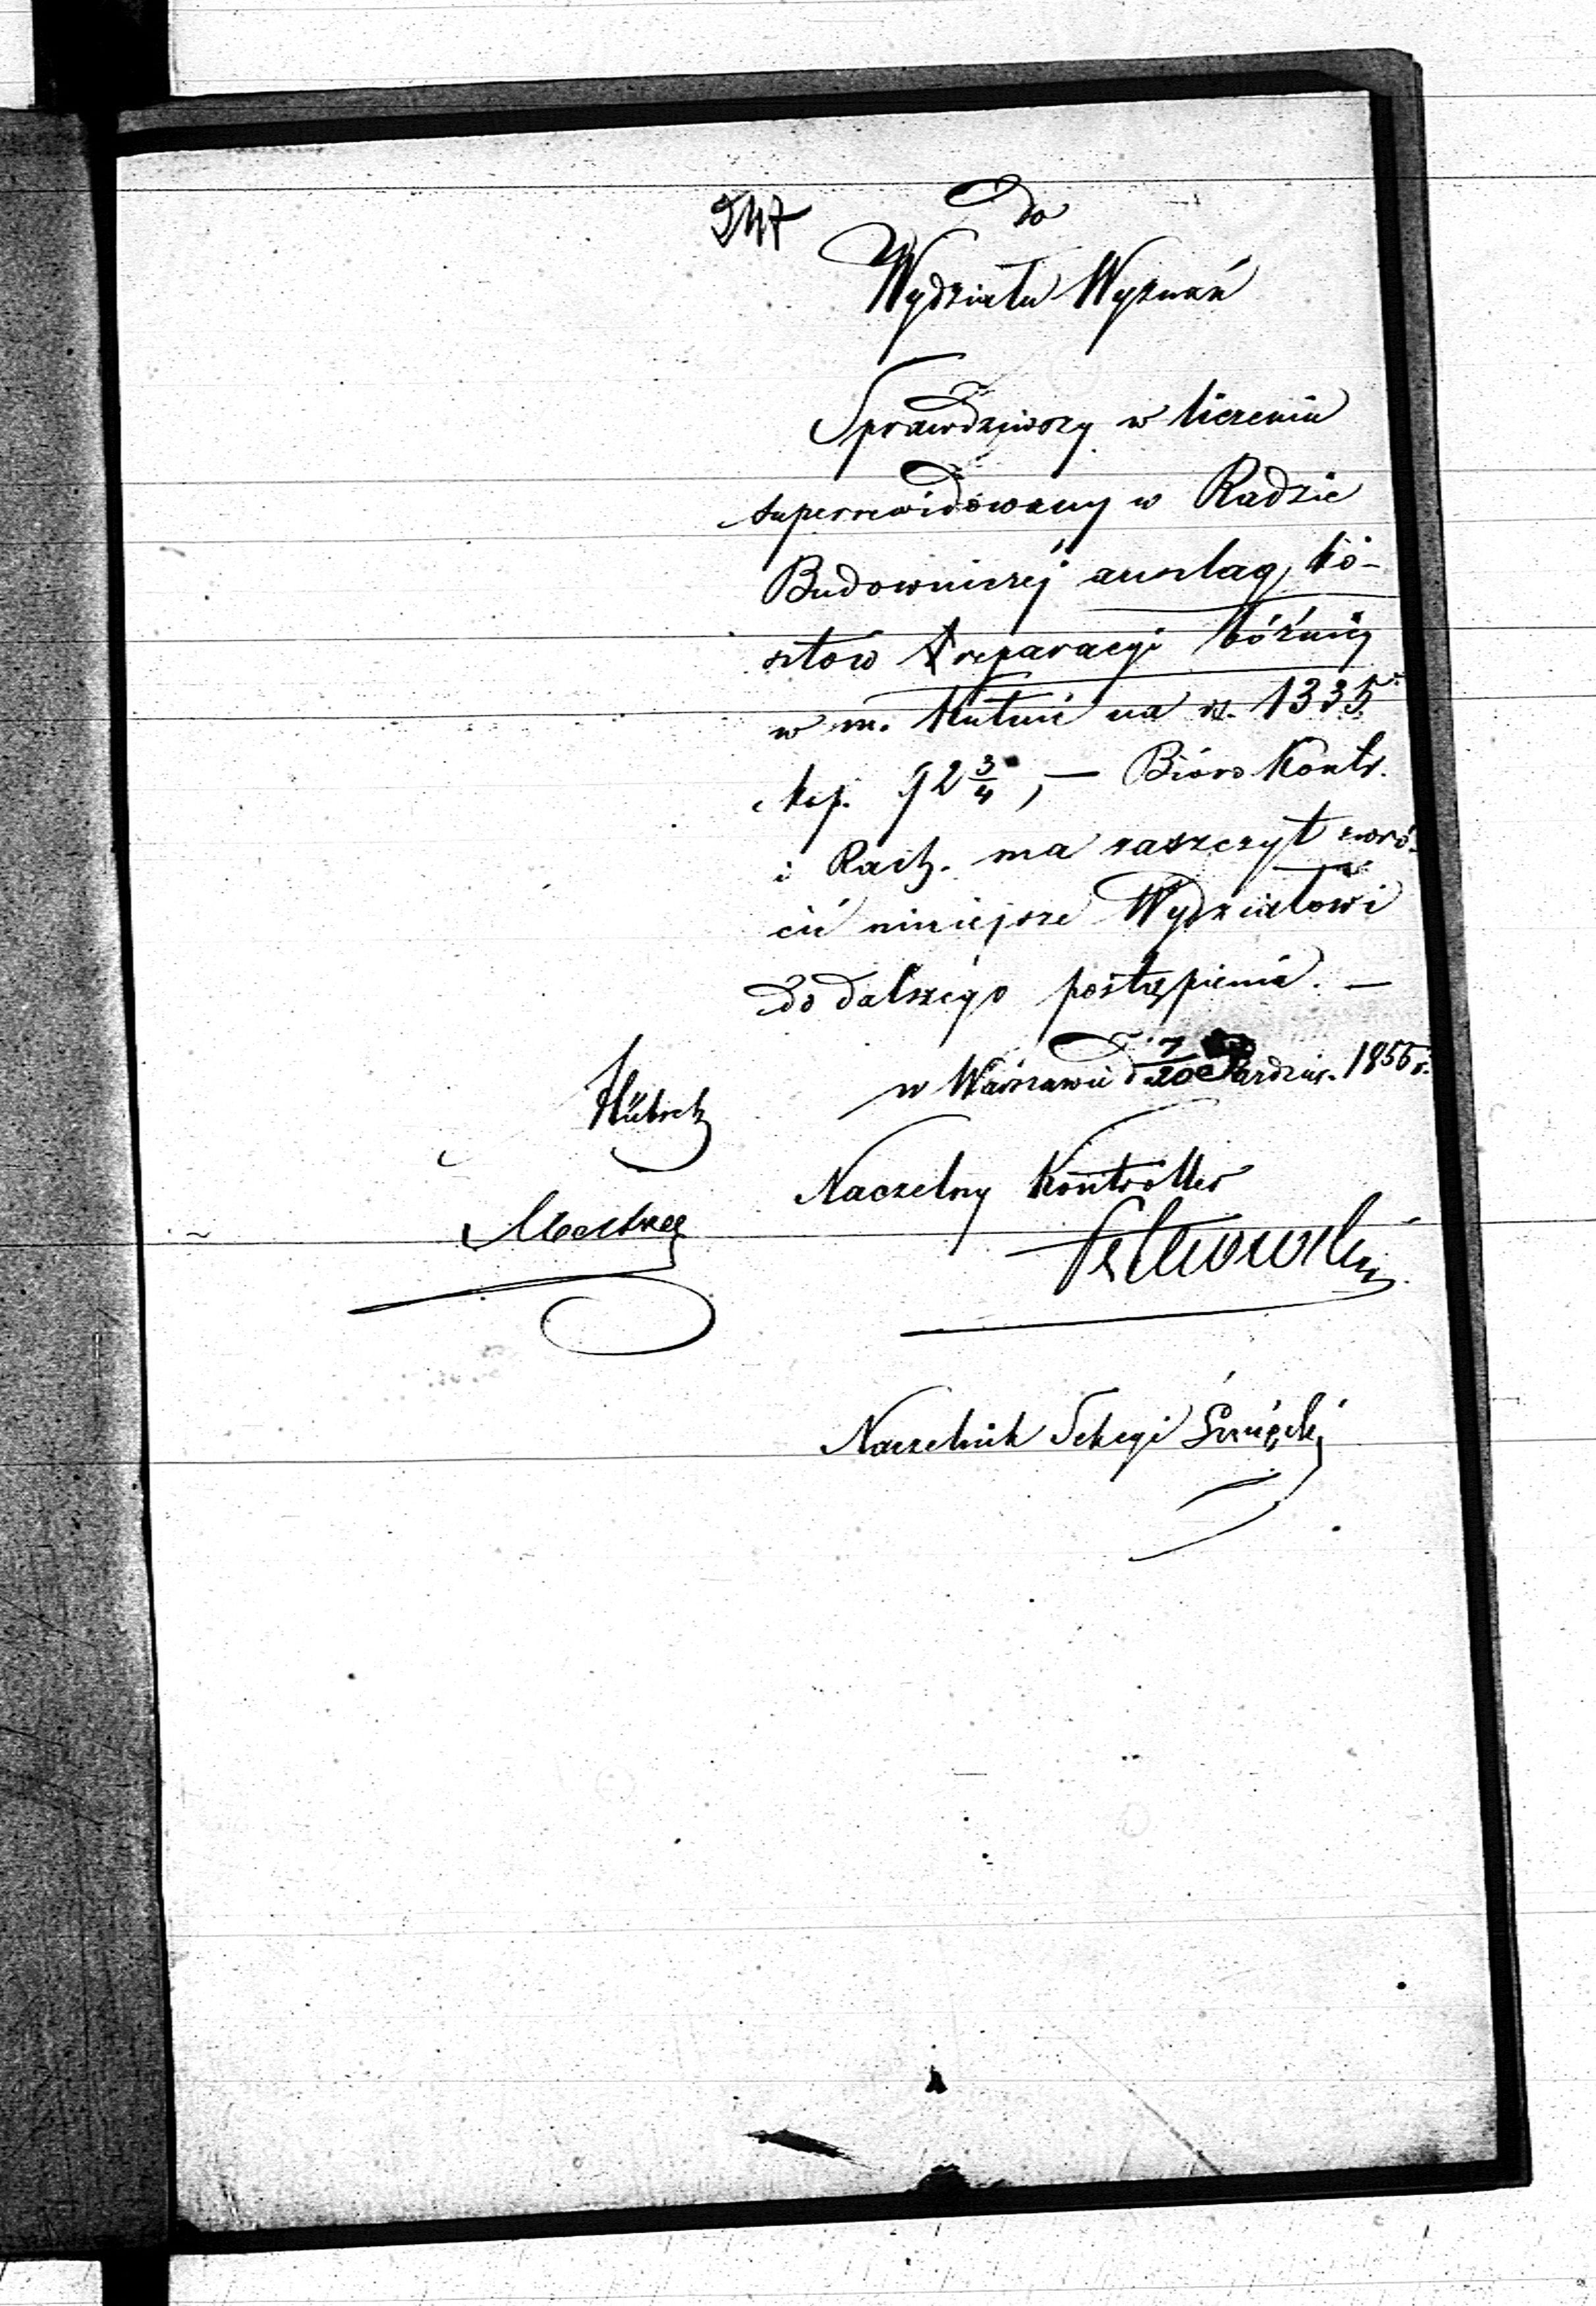 547
Do
Wydziału Wyznań
Sprawdziwszy w liczeniu
superrewidowany w Radzie
Budowniczej anszlag ko-
sztów reparacyi bóżnicy
w m. Kutnie na rs. 1335
kop. 92 3/4, — Bióro Kontr.
i Rach. ma zaszczyt zwró-
cić niniejsze Wydziałowi
do dalszego postąpienia. —
w Warszawie d. 7/20 Paździer. 1856 r.
Hübsch
Naczelny Kontroller
Naczelnik Sekcyi